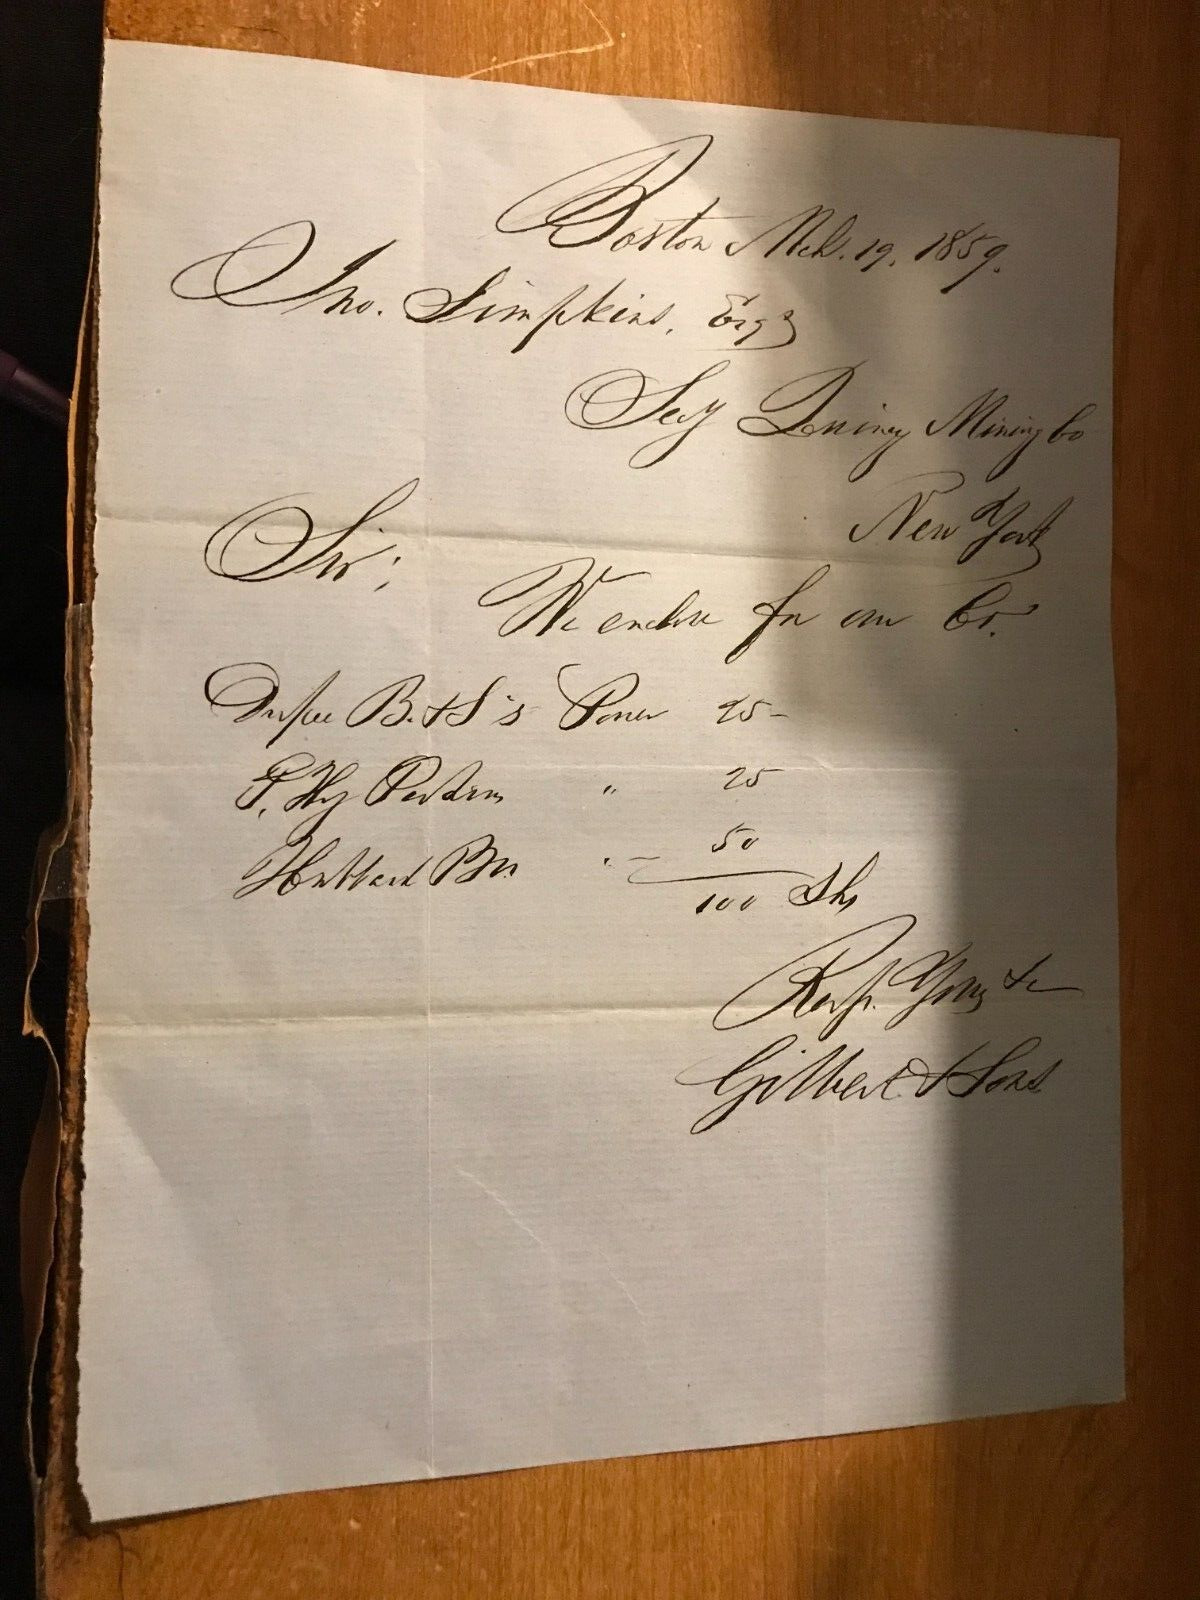 Boston Mch. 19. 1859.
Jno. Simpkins, Esqr
Secy Quincy Mining Co
New York
Sir;
We enclose for our Cr.
Dupee B. & S's Power 25-
P. Hy Perkins " 25
Hubbard Bro. " — 50
100 Shs
Respy. Yours &c
Gilbert & Sons